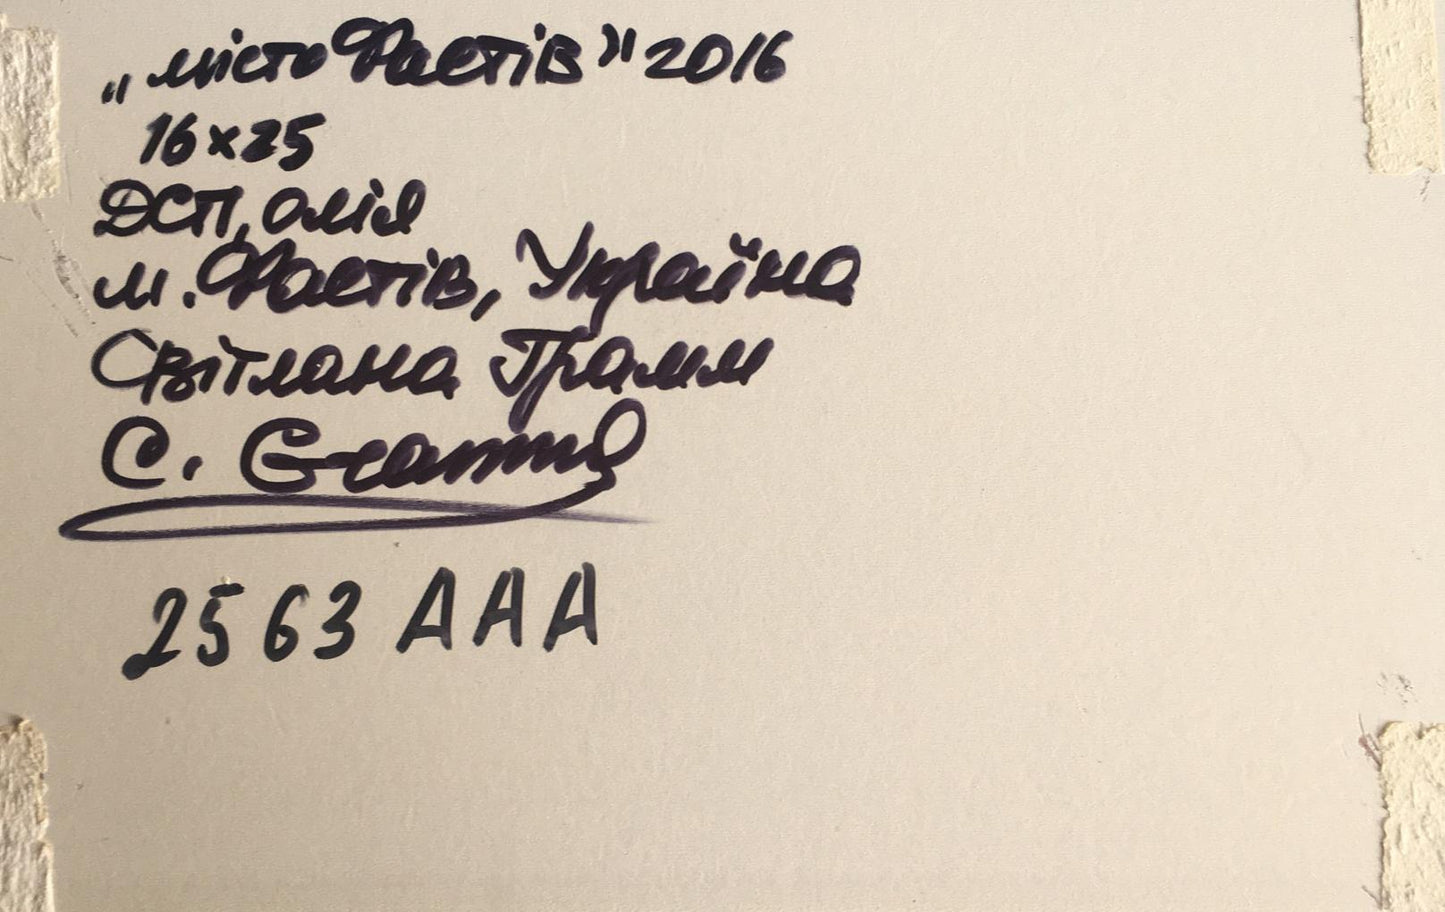 „місто Фастів” 2016
16x25
ДСП, олія
м. Фастів, Україна
Світлана Грамм
С. Gramm
2563 AAA